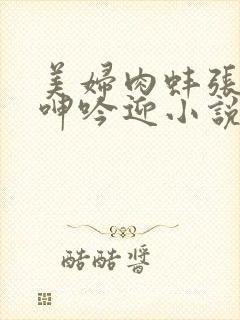 美婦肉蚌張開
呻吟迎小說
酷酷醬